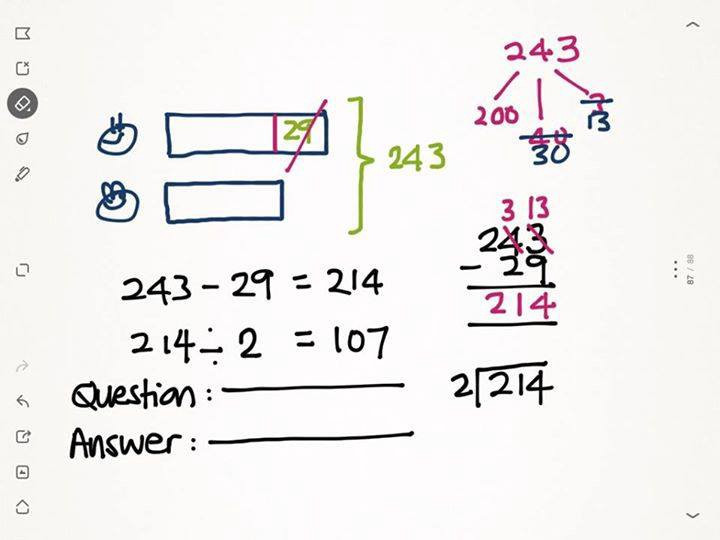 243
200
40
30
3
13
29
243
3 13
243
- 29
214
243 - 29 = 214
214 ÷ 2 = 107
2 214
Question :
Answer :
87 / 88